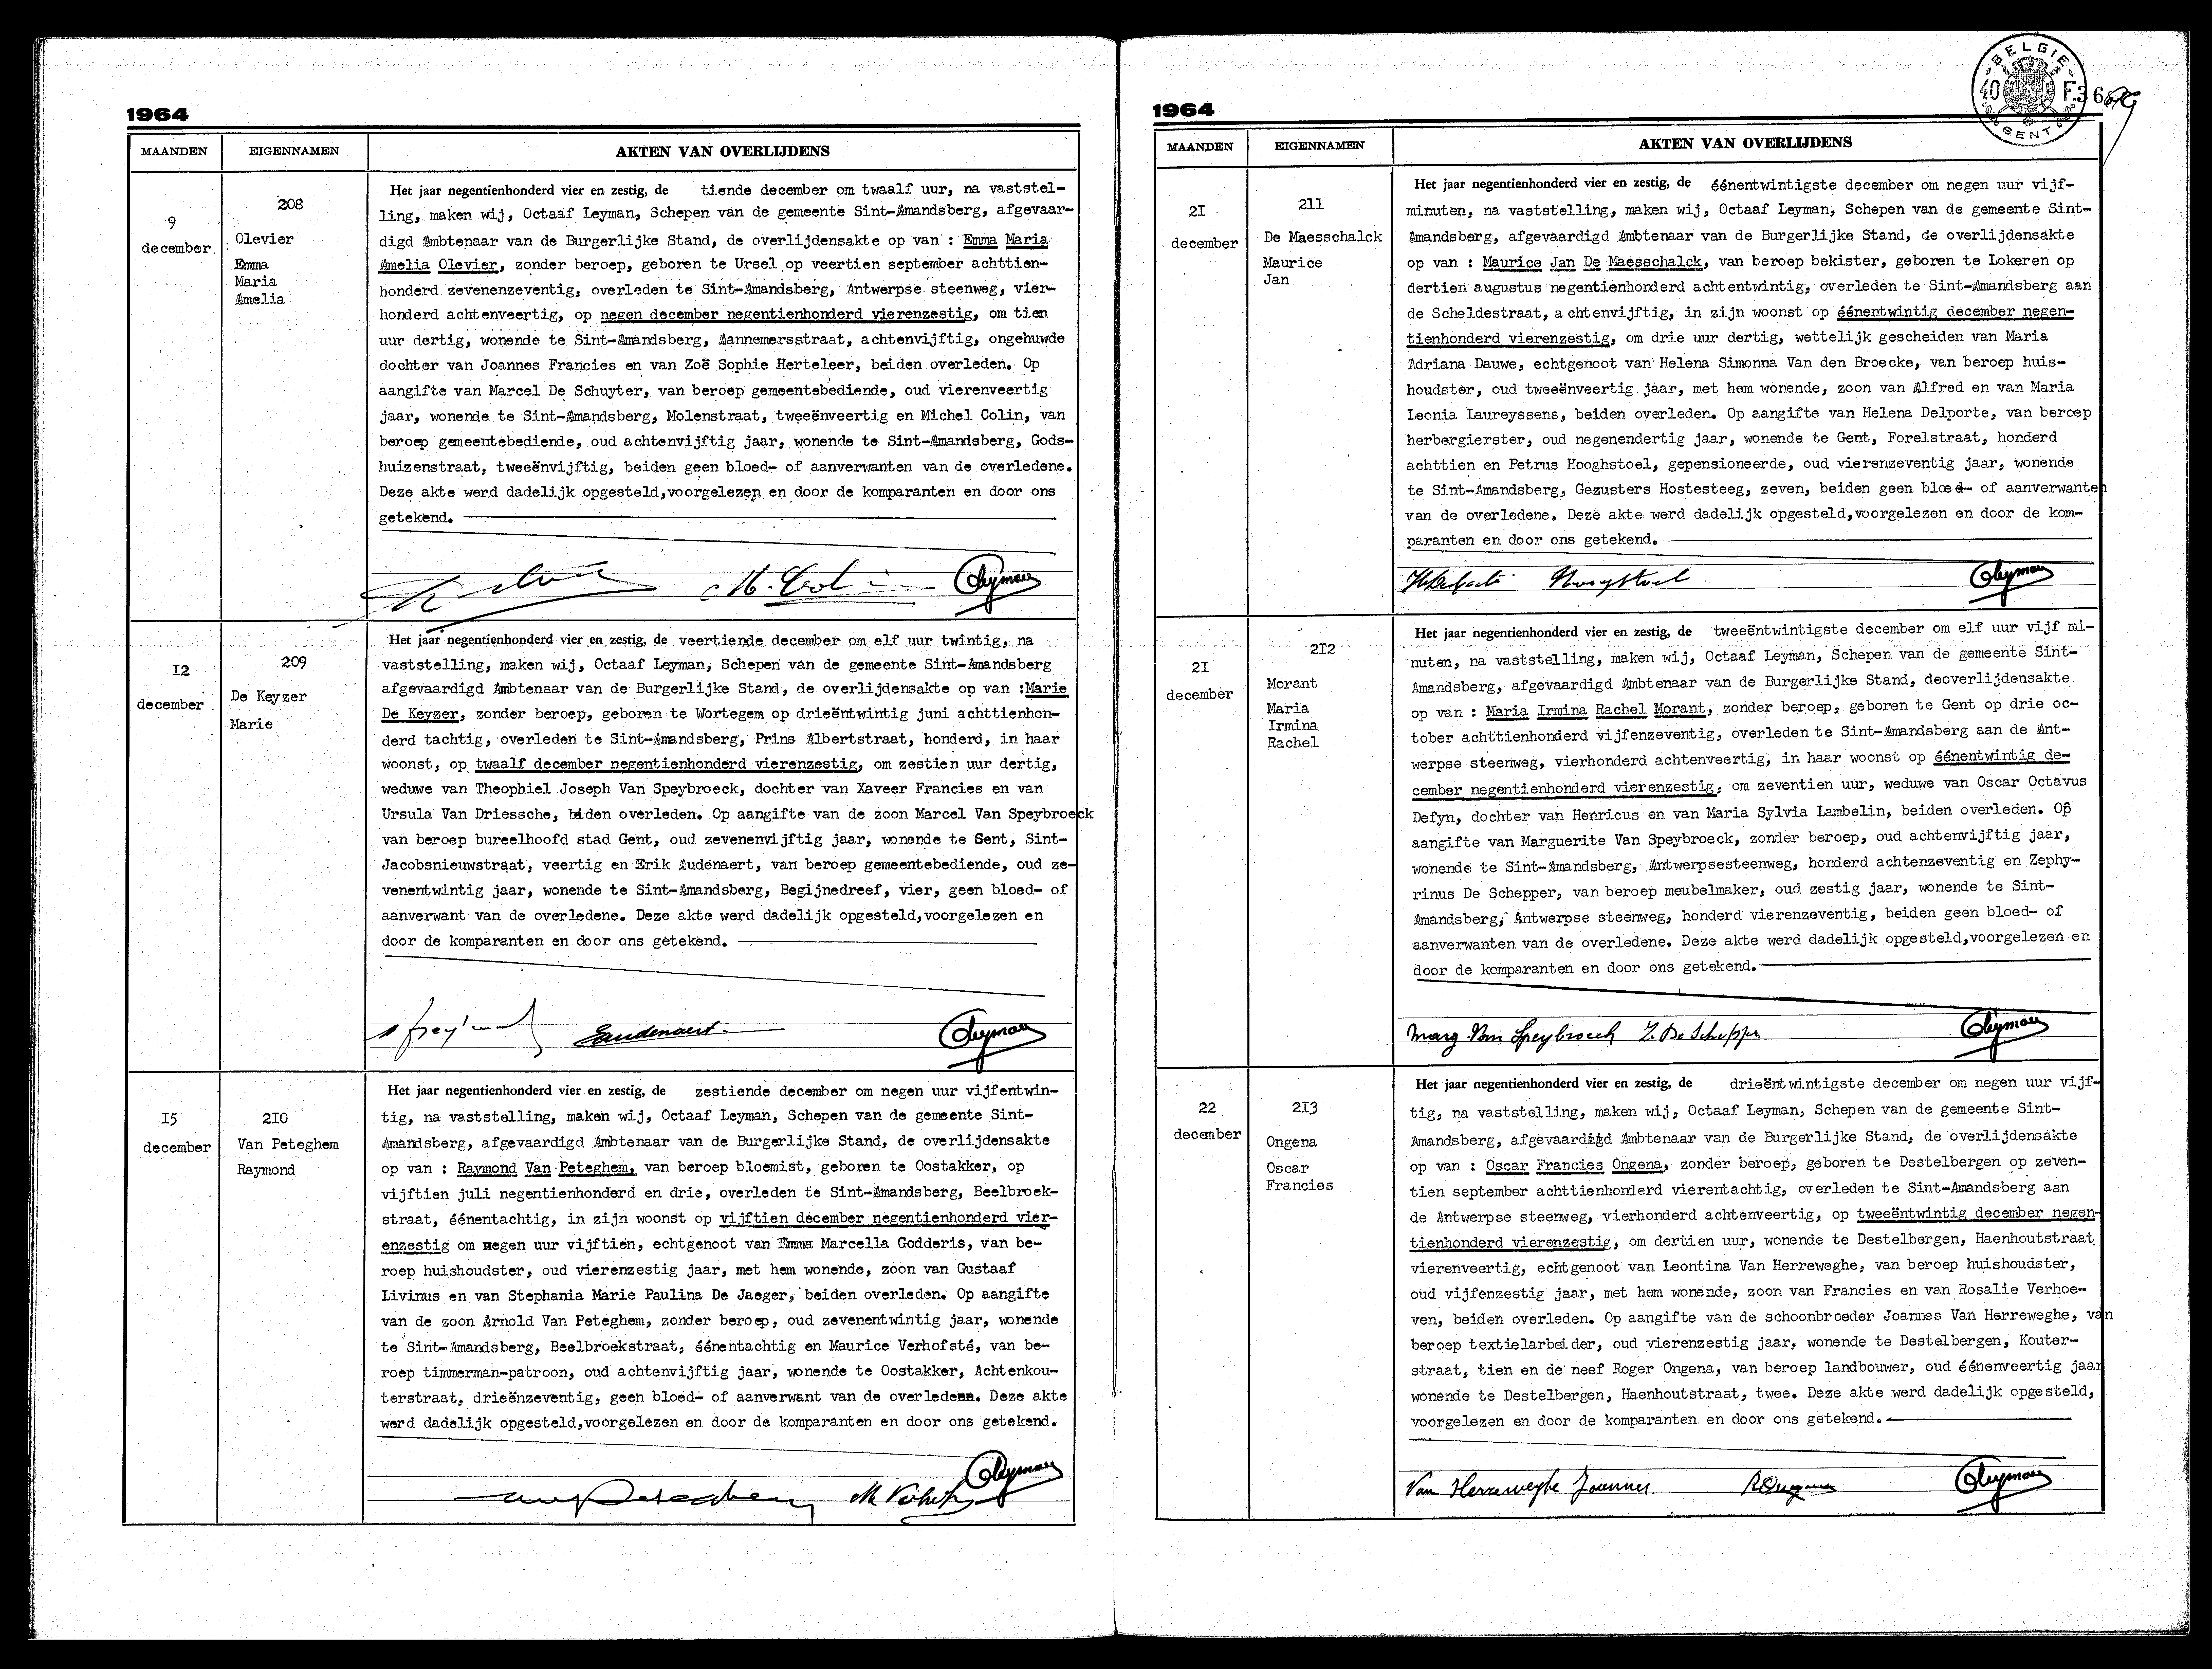 1964
MAANDEN EIGENNAMEN AKTEN VAN OVERLIJDENS
9
december
208
Olevier
Emma
Maria
Amelia
Het jaar negentienhonderd vier en zestig, de tiende december om twaalf uur, na vaststel-
ling, maken wij, Octaaf Leyman, Schepen van de gemeente Sint-Amandsberg, afgevaar-
digd Ambtenaar van de Burgerlijke Stand, de overlijdensakte op van : Emma Maria
Amelia Olevier, zonder beroep, geboren te Ursel op veertien september achttien-
honderd zevenenzeventig, overleden te Sint-Amandsberg, Antwerpse steenweg, vier-
honderd achtenveertig, op negen december negentienhonderd vierenzestig, om tien
uur dertig, wonende te Sint-Amandsberg, Aannemersstraat, achtenvijftig, ongehuwde
dochter van Joannes Francies en van Zoë Sophie Herteleer, beiden overleden. Op
aangifte van Marcel De Schuyter, van beroep gemeentebediende, oud vierenveertig
jaar, wonende te Sint-Amandsberg, Molenstraat, tweeënveertig en Michel Colin, van
beroep gemeentebediende, oud achtenvijftig jaar, wonende te Sint-Amandsberg, Gods-
huizenstraat, tweeënvijftig, beiden geen bloed- of aanverwanten van de overledene.
Deze akte werd dadelijk opgesteld,voorgelezen en door de komparanten en door ons
getekend.
M. Colin Oleyman
12
december
209
De Keyzer
Marie
Het jaar negentienhonderd vier en zestig, de veertiende december om elf uur twintig, na
vaststelling, maken wij, Octaaf Leyman, Schepen van de gemeente Sint-Amandsberg
afgevaardigd Ambtenaar van de Burgerlijke Stand, de overlijdensakte op van :Marie
De Keyzer, zonder beroep, geboren te Wortegem op drieëntwintig juni achttienhon-
derd tachtig, overleden te Sint-Amandsberg, Prins Albertstraat, honderd, in haar
woonst, op twaalf december negentienhonderd vierenzestig, om zestien uur dertig,
weduwe van Theophiel Joseph Van Speybroeck, dochter van Xaveer Francies en van
Ursula Van Driessche, biden overleden. Op aangifte van de zoon Marcel Van Speybroeck
van beroep bureelhoofd stad Gent, oud zevenenvijftig jaar, wonende te Gent, Sint-
Jacobsnieuwstraat, veertig en Erik Audenaert, van beroep gemeentebediende, oud ze-
venentwintig jaar, wonende te Sint-Amandsberg, Begijnedreef, vier, geen bloed- of
aanverwant van de overledene. Deze akte werd dadelijk opgesteld,voorgelezen en
door de komparanten en door ons getekend.
Eaudenaert Oleyman
15
december
210
Van Peteghem
Raymond
Het jaar negentienhonderd vier en zestig, de zestiende december om negen uur vijfentwin-
tig, na vaststelling, maken wij, Octaaf Leyman, Schepen van de gemeente Sint-
Amandsberg, afgevaardigd Ambtenaar van de Burgerlijke Stand, de overlijdensakte
op van : Raymond Van Peteghem, van beroep bloemist, geboren te Oostakker, op
vijftien juli negentienhonderd en drie, overleden te Sint-Amandsberg, Beelbroek-
straat, éénentachtig, in zijn woonst op vijftien december negentienhonderd vier-
enzestig om negen uur vijftien, echtgenoot van Emma Marcella Godderis, van be-
roep huishoudster, oud vierenzestig jaar, met hem wonende, zoon van Gustaaf
Livinus en van Stephania Marie Paulina De Jaeger, beiden overleden. Op aangifte
van de zoon Arnold Van Peteghem, zonder beroep, oud zevenentwintig jaar, wonende
te Sint-Amandsberg, Beelbroekstraat, éénentachtig en Maurice Verhofsté, van be-
roep timmerman-patroon, oud achtenvijftig jaar, wonende te Oostakker, Achtenkou-
terstraat, drieënzeventig, geen bloed- of aanverwant van de overledenn. Deze akte
werd dadelijk opgesteld,voorgelezen en door de komparanten en door ons getekend.
Oleyman
1964
BELGIE 40 F. GENT
MAANDEN EIGENNAMEN AKTEN VAN OVERLIJDENS
21
december
211
De Maesschalck
Maurice
Jan
Het jaar negentienhonderd vier en zestig, de éénentwintigste december om negen uur vijf-
minuten, na vaststelling, maken wij, Octaaf Leyman, Schepen van de gemeente Sint-
Amandsberg, afgevaardigd Ambtenaar van de Burgerlijke Stand, de overlijdensakte
op van : Maurice Jan De Maesschalck, van beroep bekister, geboren te Lokeren op
dertien augustus negentienhonderd achtentwintig, overleden te Sint-Amandsberg aan
de Scheldestraat, achtenvijftig, in zijn woonst op éénentwintig december negen-
tienhonderd vierenzestig, om drie uur dertig, wettelijk gescheiden van Maria
Adriana Dauwe, echtgenoot van Helena Simonna Van den Broecke, van beroep huis-
houdster, oud tweeënveertig jaar, met hem wonende, zoon van Alfred en van Maria
Leonia Laureyssens, beiden overleden. Op aangifte van Helena Delporte, van beroep
herbergierster, oud negenendertig jaar, wonende te Gent, Forelstraat, honderd
achttien en Petrus Hooghstoel, gepensioneerde, oud vierenzeventig jaar, wonende
te Sint-Amandsberg, Gezusters Hostesteeg, zeven, beiden geen bloed- of aanverwanten
van de overledene. Deze akte werd dadelijk opgesteld,voorgelezen en door de kom-
paranten en door ons getekend.
Oleyman
21
december
212
Morant
Maria
Irmina
Rachel
Het jaar negentienhonderd vier en zestig, de tweeëntwintigste december om elf uur vijf mi-
nuten, na vaststelling, maken wij, Octaaf Leyman, Schepen van de gemeente Sint-
Amandsberg, afgevaardigd Ambtenaar van de Burgerlijke Stand, deoverlijdensakte
op van : Maria Irmina Rachel Morant, zonder beroep, geboren te Gent op drie oc-
tober achttienhonderd vijfenzeventig, overleden te Sint-Amandsberg aan de Ant-
werpse steenweg, vierhonderd achtenveertig, in haar woonst op éénentwintig de-
cember negentienhonderd vierenzestig, om zeventien uur, weduwe van Oscar Octavus
Defyn, dochter van Henricus en van Maria Sylvia Lambelin, beiden overleden. Op
aangifte van Marguerite Van Speybroeck, zonder beroep, oud achtenvijftig jaar,
wonende te Sint-Amandsberg, Antwerpsesteenweg, honderd achtenzeventig en Zephy-
rinus De Schepper, van beroep meubelmaker, oud zestig jaar, wonende te Sint-
Amandsberg, Antwerpse steenweg, honderd vierenzeventig, beiden geen bloed- of
aanverwanten van de overledene. Deze akte werd dadelijk opgesteld,voorgelezen en
door de komparanten en door ons getekend.
Marg. Van Speybroeck Z. De Schepper Oleyman
22
december
213
Ongena
Oscar
Francies
Het jaar negentienhonderd vier en zestig, de drieëntwintigste december om negen uur vijf-
tig, na vaststelling, maken wij, Octaaf Leyman, Schepen van de gemeente Sint-
Amandsberg, afgevaardigd Ambtenaar van de Burgerlijke Stand, de overlijdensakte
op van : Oscar Francies Ongena, zonder beroep, geboren te Destelbergen op zeven-
tien september achttienhonderd vierentachtig, overleden te Sint-Amandsberg aan
de Antwerpse steenweg, vierhonderd achtenveertig, op tweeëntwintig december negen-
tienhonderd vierenzestig, om dertien uur, wonende te Destelbergen, Haenhoutstraat
vierenveertig, echtgenoot van Leontina Van Herreweghe, van beroep huishoudster,
oud vijfenzestig jaar, met hem wonende, zoon van Francies en van Rosalie Verhoe-
ven, beiden overleden. Op aangifte van de schoonbroeder Joannes Van Herreweghe, van
beroep textielarbeider, oud vierenzestig jaar, wonende te Destelbergen, Kouter-
straat, tien en de neef Roger Ongena, van beroep landbouwer, oud éénenveertig jaar
wonende te Destelbergen, Haenhoutstraat, twee. Deze akte werd dadelijk opgesteld,
voorgelezen en door de komparanten en door ons getekend.
Van Herreweghe Joannes ROngena Oleyman